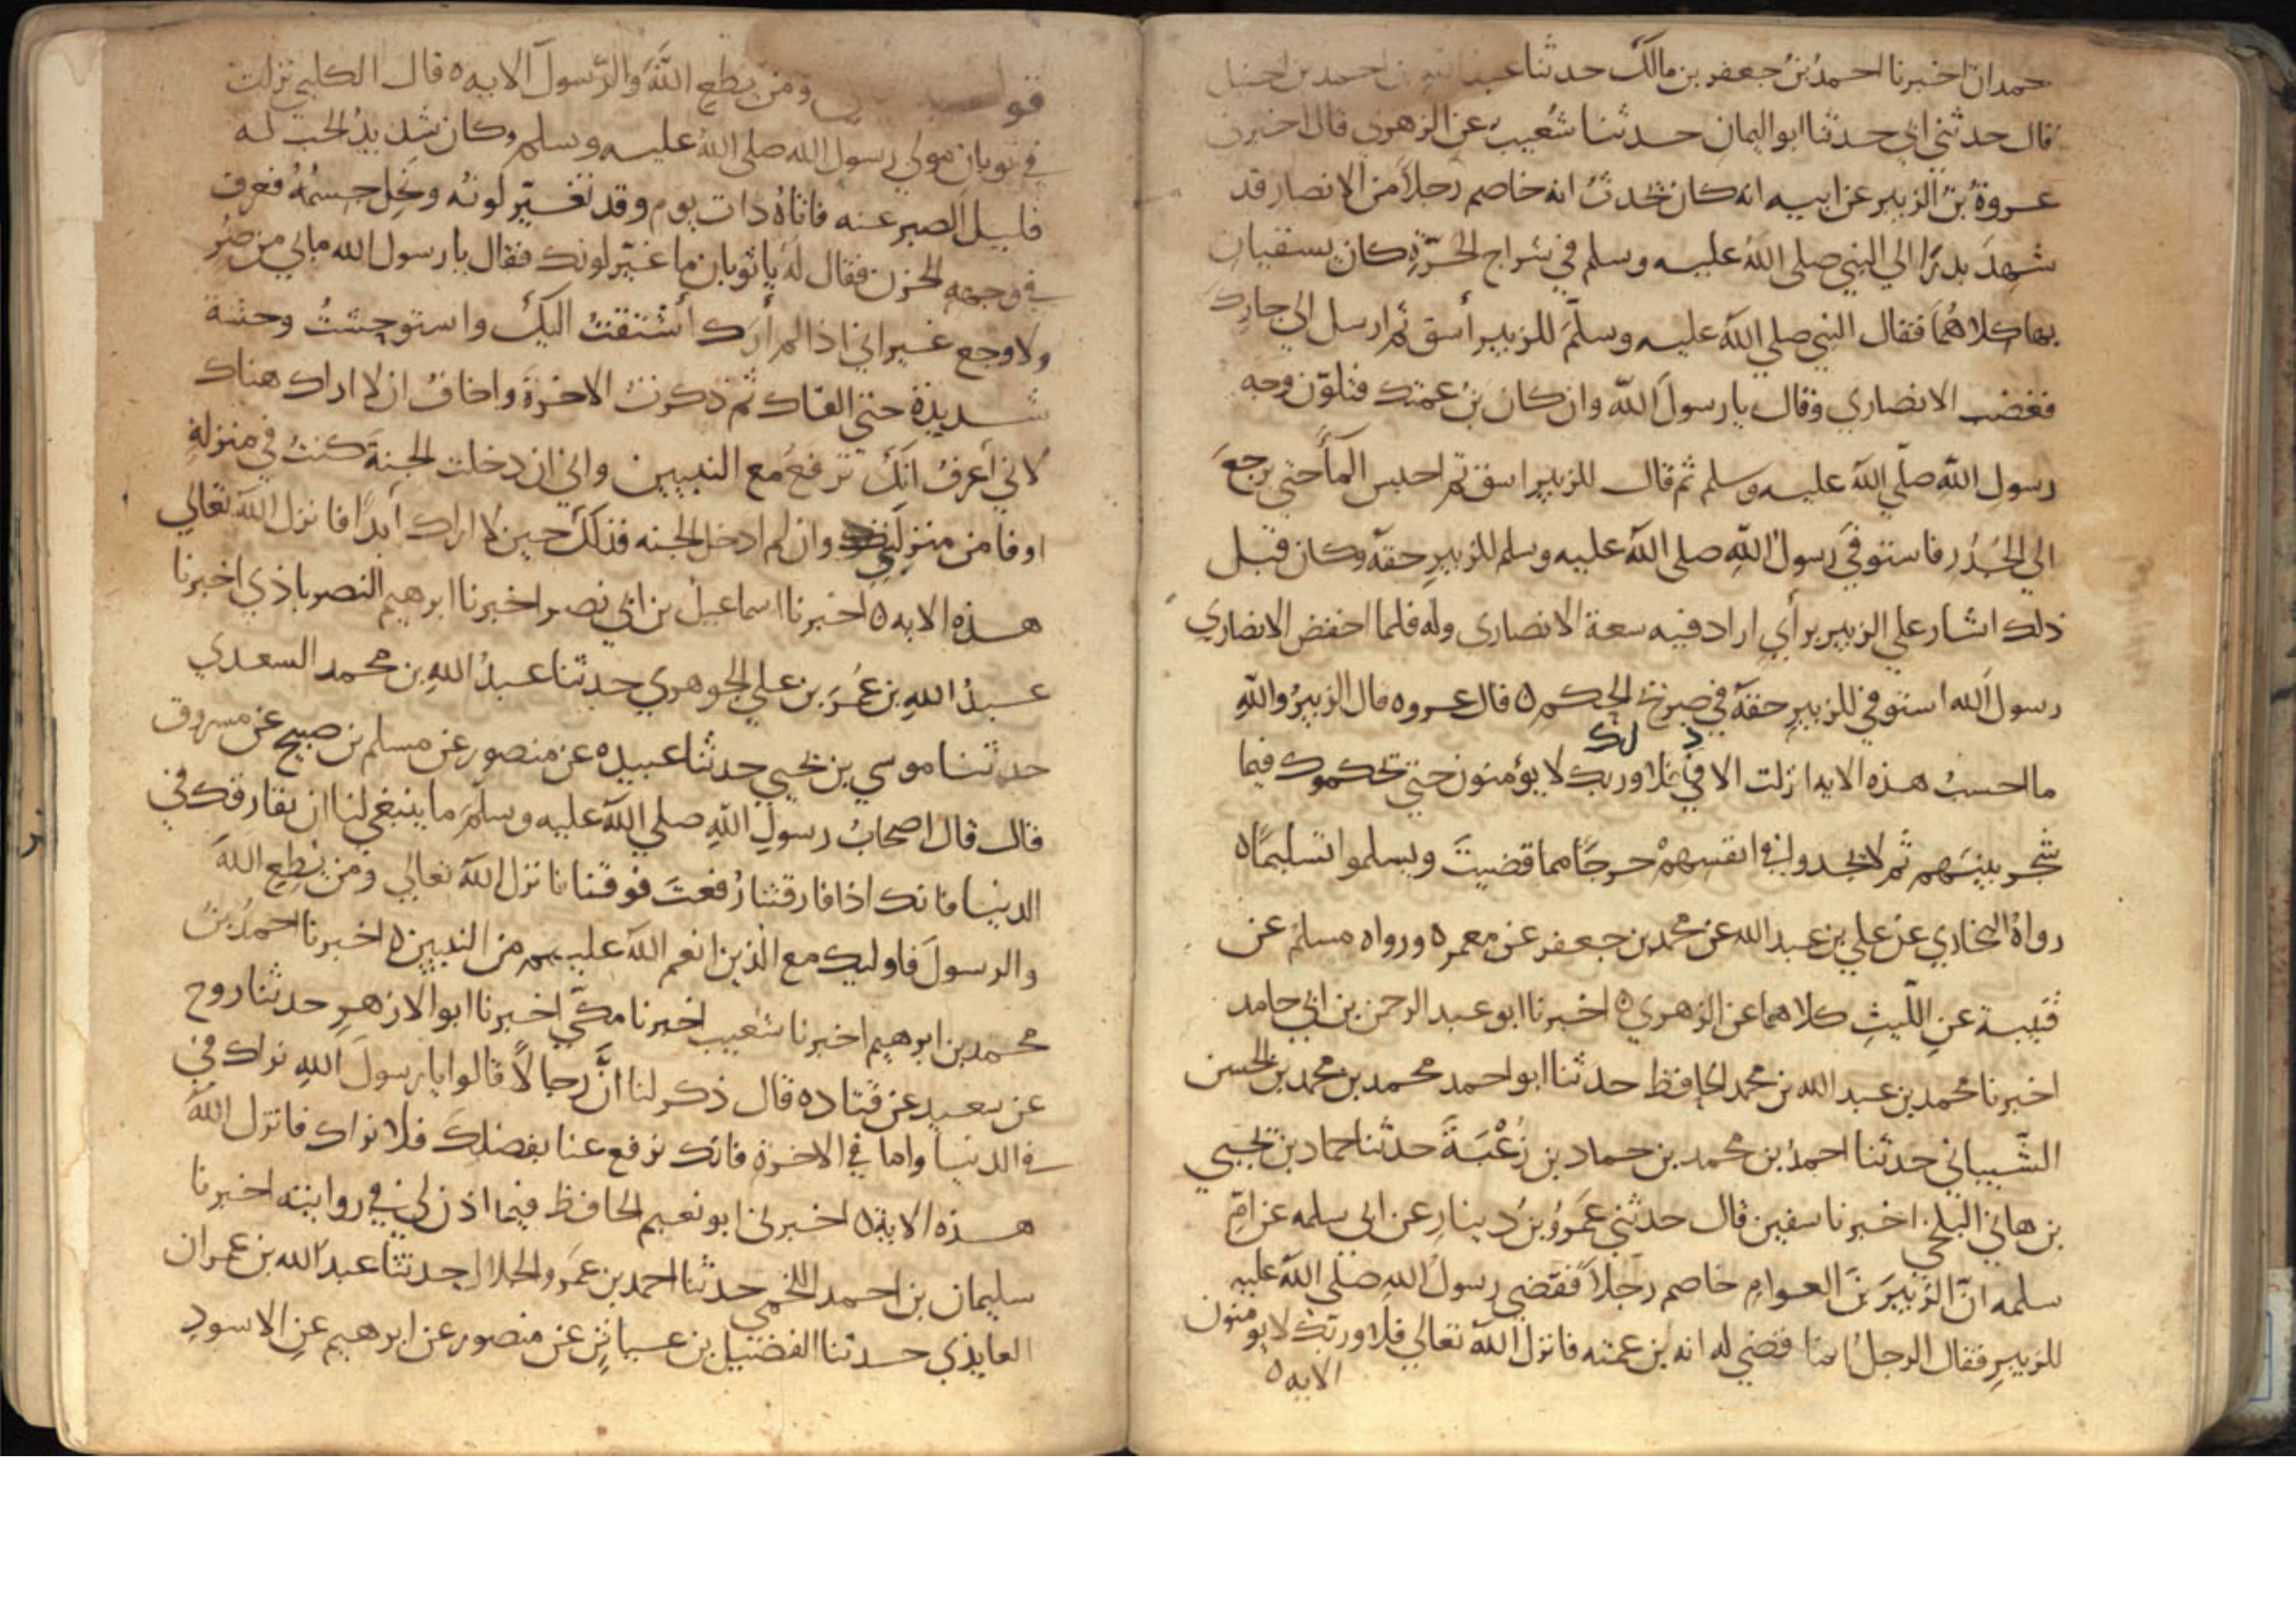 حمدان اخبرنا احمدُ بنُ جعفر بن مالك حدثنا عبد الله بن احمد بن حنبل
قال حدثني ابي حدثنا ابو اليمان حدثنا شُعيب عن الزهري قال اخبرني
عروةُ بنُ الزبير عن ابيه انه كان يُحدثُ انه خاصم رجلاً من الانصار قد
شهدَ بدرًا الي النبي صلى اللهُ عليه وسلم في شراج الحَرّةِ كان يسقيان
بها كلاهُما فقال النبي صلي الله عليه وسلمَ للزبير أسق ثم ارسل الي جارك
فغضب الانصاري وقال يا رسولَ الله وان كان بنُ عمتك فتلوّن وجه
رسولِ اللهِ صلّي الله عليه وسلم ثم قال للزبير اسق ثم احبس المأَ حتي يرجعَ
الي الجُدُر فاستوفيَ رسولُ اللهِ صلى الله عليه وسلم للزبيرِ حقهَ وكان قبل
ذلك اشار علي الزبير برأيٍ اراد فيه سعة الانصاري وله فلما احفض الانصاري
رسولَ الله استوفي للزبيرِ حقهَ في صريح الحكم ه قال عروه قال الزبيرُ واللهِ
ما احسبُ هذه الايه انزلت الا في ذلك فلا وربك لا يؤمنون حتي يحكموك فيما
شجر بينَهم ثم لا يجدوا في انفسهمْ حرجًا مما قضيتَ ويسلموا تسليمًا ه
رواهُ البخاري عن علي بن عبد الله عن محمد بن جعفر عن معمر ه ورواه مسلم عن
قتيبة عنِ اللّيثِ كلاهما عن الزهري ه اخبرنا ابو عبد الرحمن بن ابي حامد
اخبرنا محمد بن عبد الله بن محمد الحافظ حدثنا ابو احمد محمد بن محمد بن الحسن
الشّيباني حدثنا احمدُ بن محمد بن حماد بن زُغْبَةَ حدثنا حماد بن يحيي
بن هاني البلخي اخبرنا سفين قال حدثني عَمروُ بنُ دينارِ عن ابي سلمه عن امِّ
سلمه انّ الزبيرَ بنَ العوامِ خاصم رجلاً فقضي رسولُ اللهِ صلي الله عليه
للزبيرِ فقال الرجلُ انما قضي له انه بن عمته فانزل اللهُ تعالي فلا وربك لا يومنون
الايه ه
قو ومن يطعِ اللهَ والرّسولَ الايه ه قال الكلبي نزلت
في ثوبان مولي رسول الله صلى اللهُ عليه وسلم وكان شديدُ الحب له
قليلَ الصبرِ عنه فاتاهُ ذات يوم وقد تغيّر لونهُ ونَحِل جسمُهُ فعرف
في وجههِ الحزن فقال لهُ يا ثوبان ما غيّر لونك فقال يا رسول الله ما بي من ضُر
ولا وجع غير اني اذا لم أرَك أشتقتُ اليكَ واستوحشتُ وحشة
شديدة حتي القاك ثم ذكرتُ الاخرة واخافُ ان لا اراك هناك
لاني أعرفُ انكَ ترفعُ مع النبيين واني ان دخلت الجنةَ كنتُ في منزلةٍ
اوفا من منزلتي وان لم ادخل الجنه فذلكَ حين لا اراك أبدًا فانزل اللهُ تعالي
هذه الايه ه اخبرنا اسماعيل بن ابي نصر اخبرنا ابرهيم النصراباذي اخبرنا
عبدُ اللهِ بن عُمَرَ بن علي الجوهري حدثنا عبدُ اللهِ بن محمد السعدي
حدثنا موسي بن يحيي حدثنا عبيده عن منصور عن مسلم بن صبيح عن مسروق
قال قال اصحابُ رسولِ اللهِ صلي الله عليه وسلمَ ما ينبغي لنا ان نفارقك في
الدنيا فانك اذا فارقتنا رُفعتَ فوقنا فانزل اللهُ تعالي ومن يُطِعِ اللهَ
والرسولَ فاوليك مع الذين انعم اللهُ عليهم من النبيين ه اخبرنا احمدُ بنُ
محمد بن ابرهيم اخبرنا شعيب اخبرنا مكّي اخبرنا ابو الازهرِ حدثنا روح
عن سعيد عن قتاده قال ذكر لنا انَّ رجالاً قالوا يا رسولَ اللهِ نراك في
في الدنيا واما في الاخرة فانك ترفع عنا بفضلِكَ فلا نراك فانزل اللهُ
هذه الاية ه اخبرني ابو نعيم الحافظ فيما اذن لي في روايته اخبرنا
سليمان بن احمد اللخمي حدثنا احمد بن عَمرو الخلال حدثنا عبدُ الله بن عمران
العايذي حدثنا الفضيل بن عياضٍ عن منصور عن ابرهيم عنِ الاسودِ